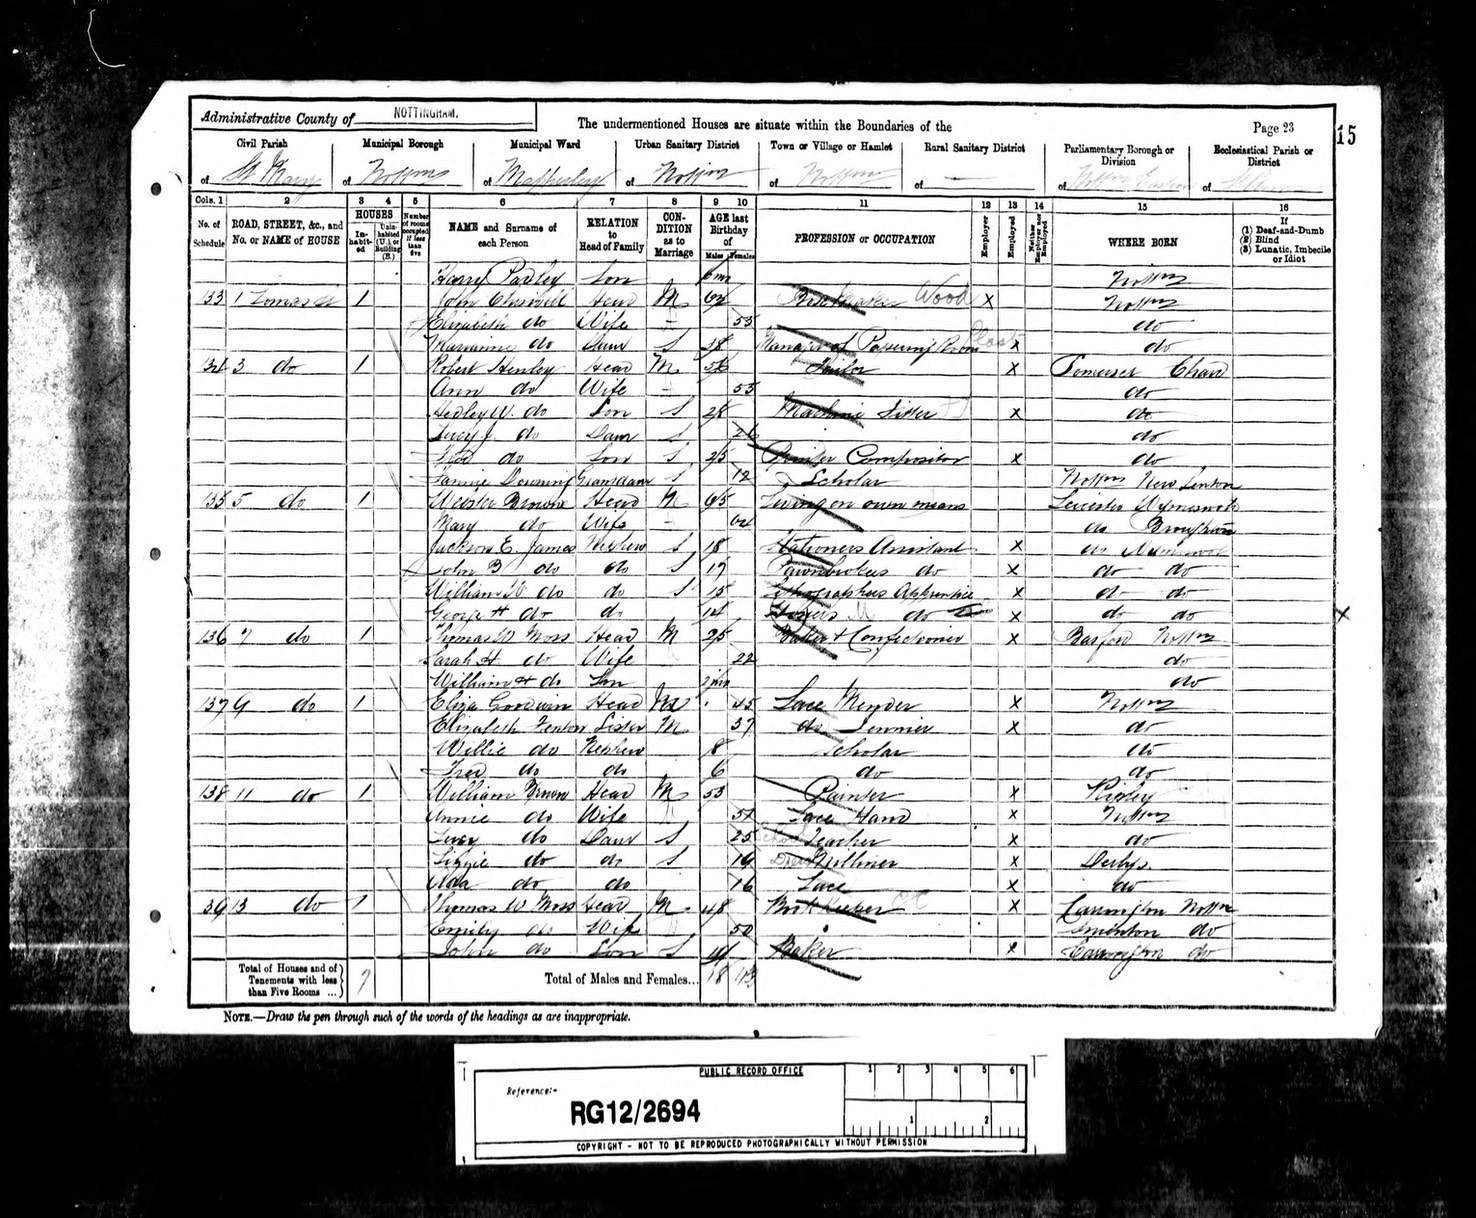 Administrative County of NOTTINGHAM.
The undermentioned Houses are situate within the Boundaries of the
Page 23
15
Civil Parish
Municipal Borough
Municipal Ward
Urban Sanitary District
Town or Village or Hamlet
Rural Sanitary District
Parliamentary Borough or Division
Ecclesiastical Parish or District
of St Mary of Nottm of Mapperley of Nottm of Nottm of — of Nottm of
Cols. 1 2 3 4 5 6 7 8 9 10 11 12 13 14 15 16
No. of Schedule
ROAD, STREET, &c., and No. or NAME of HOUSE
HOUSES
In-habit-ed
Unin-habited (U.), or Building (B.)
Number of rooms occupied if less than five
NAME and Surname of each Person
RELATION to Head of Family
CON-DITION as to Marriage
AGE last Birthday of
Males Females
PROFESSION or OCCUPATION
Employer
Employed
Neither Employer nor Employed
WHERE BORN
If
(1) Deaf-and-Dumb
(2) Blind
(3) Lunatic, Imbecile or Idiot
Harry Padley Son 6 mo Nottm
133 1 Lomas St 1 John Head M 62 Wood x Nottm
Elizabeth do Wife 55 do
Marianne do Daur S Manager of Room x do
134 3 do 1 Robert Henley Head M 56 Tailor x Somerset Chard
Ann do Wife 55 do
Hedley W. do Son S 28 Machine Fitter x do
Lucy J. do Daur S 26 do
do Son S 25 Printer Compositor x do
Fannie Downing Grandaur S 12 Scholar Nottm New Lenton
135 5 do 1 Brown Head M 65 Living on own means Leicester Wymeswold
Mary do Wife 62 do
Jackson E. James Nephew S 18 Stationers Assistant x do
John B do do S 17 Pawnbrokers do x do do
William W do do S 15 Lithographers Apprentice x do do
George H do do 14 do x do do x
136 7 do 1 Thomas W Moss Head M 25 Baker & Confectioner x Basford Nottm
Sarah H do Wife 22 do
William H do Son 2 mo do
137 9 do 1 Eliza Goodwin Head 45 Lace Mender x Nottm
Elizabeth Fenton Sister M 37 do x do
Willie do Nephew 8 Scholar do
Fred do do 6 do do
138 11 do 1 William Brown Head M 53 Painter x Ripley
Annie do Wife 51 Lace Hand x Nottm
Lucy do Daur S 25 School Teacher x do
Lizzie do do S 19 Milliner x Derbys.
Ada do do 16 Lace x do
139 13 do 1 Thomas W Moss Head M 48 Book Keeper x Carrington Nottm
Emily do Wife 50 do
John do Son S 19 Baker x Carrington do
Total of Houses and of Tenements with less than Five Rooms ... 7
Total of Males and Females... 18 13
NOTE.—Draw the pen through such of the words of the headings as are inappropriate.
PUBLIC RECORD OFFICE
1 2 3 4 5 6
Reference:-
RG12/2694
1 2
COPYRIGHT - NOT TO BE REPRODUCED PHOTOGRAPHICALLY WITHOUT PERMISSION